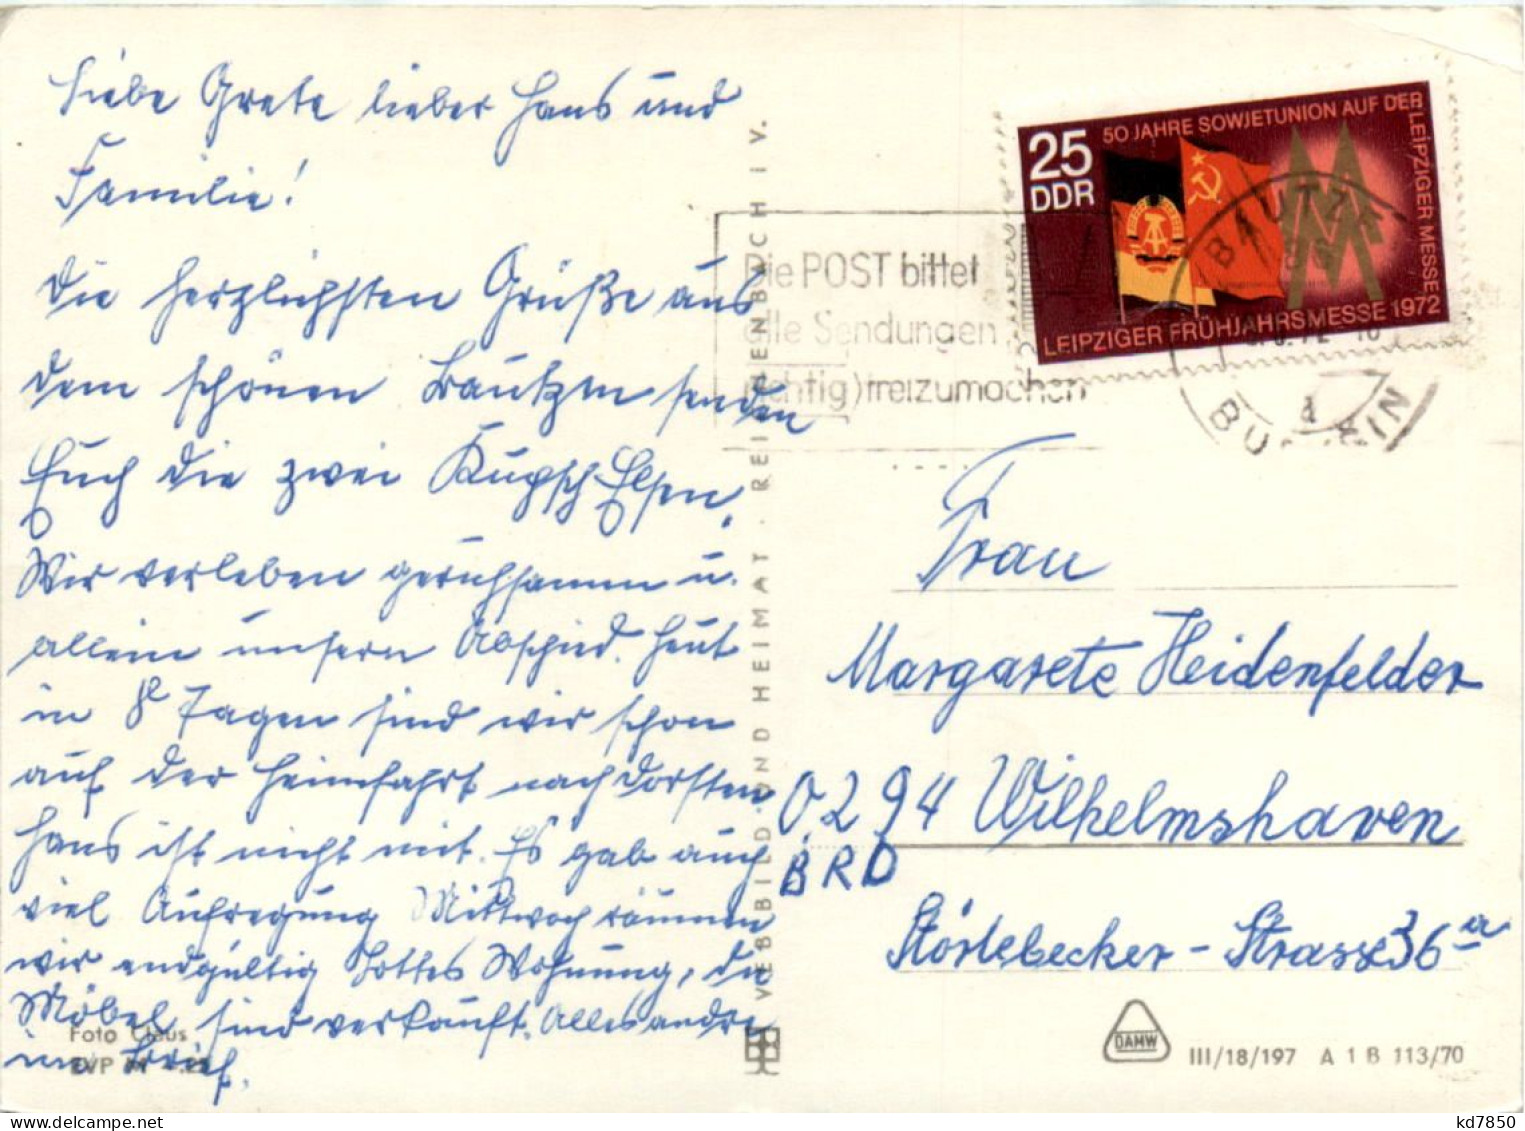 Liebe Grete lieber Hans und
Familie!
Die herzlichsten Grüße aus
dem schönen Bautzen senden
Euch die zwei Kupsch-Elsen.
Wir verleben geruhsamm u.
allein unsern Abschied. Heut
in 8 Tagen sind wir schon
auf der Heimfahrt nach Dorsten
Hans ist nicht mit. Es gab auch
viel Aufregung Mittwoch räumen
wir endgültig Lottes Wohnung, die
Möbel sind verkauft. Alles andre
im Brief.
Foto Claus
EVP M
VEB BILD UND HEIMAT · REICHENBACH I V.
50 JAHRE SOWJETUNION AUF DER LEIPZIGER MESSE
25
DDR
LEIPZIGER FRÜHJAHRSMESSE 1972
Die POST bittet
alle Sendungen
(richtig) freizumachen
BAUTZEN
BUDYŠIN
Frau
Margarete Heidenfelder
0294 Wilhelmshaven
BRD
Störtebecker-Strasse 36a
DAMW
III/18/197 A 1 B 113/70
kd7850